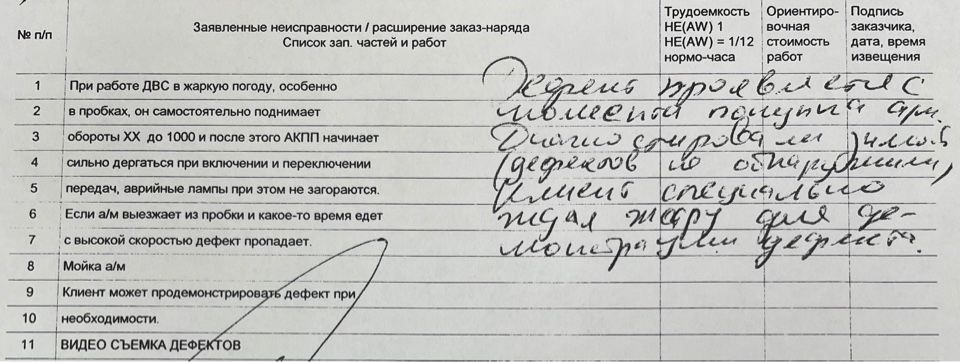 № п/п
Заявленные неисправности / расширение заказ-наряда
Список зап. частей и работ
Трудоемкость
НЕ(AW) 1
НЕ(AW) = 1/12
нормо-часа
Ориентиро-
вочная
стоимость
работ
Подпись
заказчика,
дата, время
извещения
1 При работе ДВС в жаркую погоду, особенно
2 в пробках, он самостоятельно поднимает
3 обороты ХХ до 1000 и после этого АКПП начинает
4 сильно дергаться при включении и переключении
5 передач, аврийные лампы при этом не загораются.
6 Если а/м выезжает из пробки и какое-то время едет
7 с высокой скоростью дефект пропадает.
8 Мойка а/м
9 Клиент может продемонстрировать дефект при
10 необходимости.
11 ВИДЕО СЪЕМКА ДЕФЕКТОВ
Дефект проявляется с
момента покупки а/м.
Диагностировали зимой
(дефектов не обнаружили),
клиент специально
ждал жару для де-
монстрации дефекта.